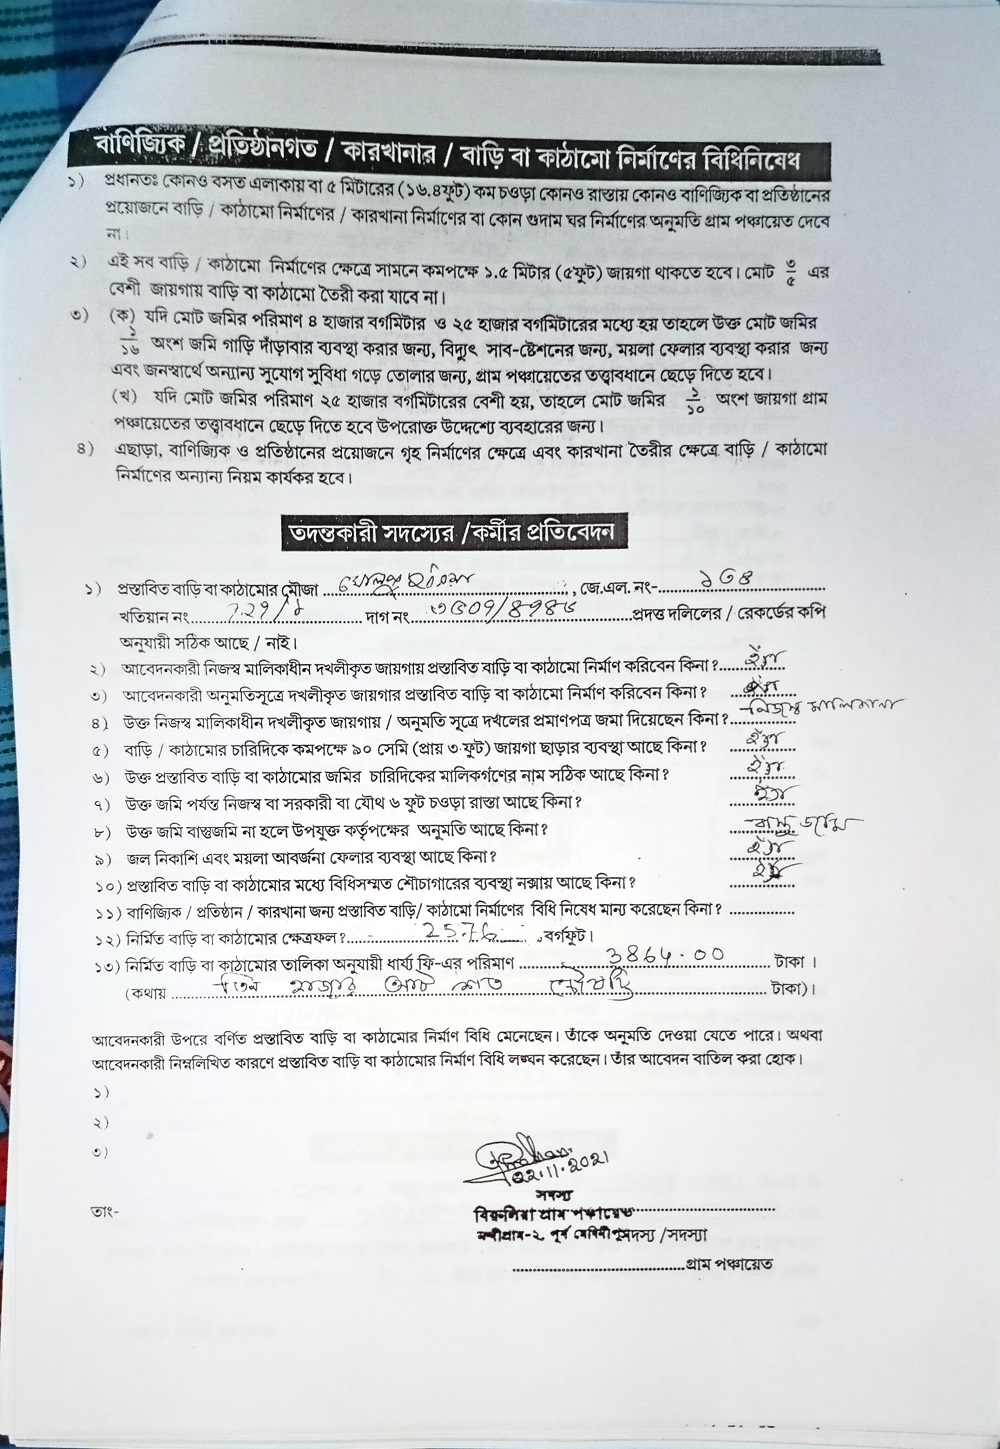 বাণিজ্যিক / প্রতিষ্ঠানগত / কারখানার / বাড়ি বা কাঠামো নির্মাণের বিধিনিষেধ
১) প্রধানতঃ কোনও বসত এলাকায় বা ৫ মিটারের (১৬.৪ফুট) কম চওড়া কোনও রাস্তায় কোনও বাণিজ্যিক বা প্রতিষ্ঠানের
প্রয়োজনে বাড়ি / কাঠামো নির্মাণের / কারখানা নির্মাণের বা কোন গুদাম ঘর নির্মাণের অনুমতি গ্রাম পঞ্চায়েত দেবে
না।
২) এই সব বাড়ি / কাঠামো নির্মাণের ক্ষেত্রে সামনে কমপক্ষে ১.৫ মিটার (৫ফুট) জায়গা থাকতে হবে। মোট ৩/৫ এর
বেশী জায়গায় বাড়ি বা কাঠামো তৈরী করা যাবে না।
৩) (ক) যদি মোট জমির পরিমাণ ৪ হাজার বর্গমিটার ও ২৫ হাজার বর্গমিটারের মধ্যে হয় তাহলে উক্ত মোট জমির
১/১৬ অংশ জমি গাড়ি দাঁড়াবার ব্যবস্থা করার জন্য, বিদ্যুৎ সাব-ষ্টেশনের জন্য, ময়লা ফেলার ব্যবস্থা করার জন্য
এবং জনস্বার্থে অন্যান্য সুযোগ সুবিধা গড়ে তোলার জন্য, গ্রাম পঞ্চায়েতের তত্ত্বাবধানে ছেড়ে দিতে হবে।
(খ) যদি মোট জমির পরিমাণ ২৫ হাজার বর্গমিটারের বেশী হয়, তাহলে মোট জমির ১/১০ অংশ জায়গা গ্রাম
পঞ্চায়েতের তত্ত্বাবধানে ছেড়ে দিতে হবে উপরোক্ত উদ্দেশ্যে ব্যবহারের জন্য।
৪) এছাড়া, বাণিজ্যিক ও প্রতিষ্ঠানের প্রয়োজনে গৃহ নির্মাণের ক্ষেত্রে এবং কারখানা তৈরীর ক্ষেত্রে বাড়ি / কাঠামো
নির্মাণের অন্যান্য নিয়ম কার্যকর হবে।
তদন্তকারী সদস্যের /কর্মীর প্রতিবেদন
১) প্রস্তাবিত বাড়ি বা কাঠামোর মৌজা ..............., জে.এল. নং- ...............
খতিয়ান নং............... দাগ নং...............প্রদত্ত দলিলের / রেকর্ডের কপি
অনুযায়ী সঠিক আছে / নাই।
২) আবেদনকারী নিজস্ব মালিকাধীন দখলীকৃত জায়গায় প্রস্তাবিত বাড়ি বা কাঠামো নির্মাণ করিবেন কিনা? হ্যাঁ
৩) আবেদনকারী অনুমতিসূত্রে দখলীকৃত জায়গার প্রস্তাবিত বাড়ি বা কাঠামো নির্মাণ করিবেন কিনা?
৪) উক্ত নিজস্ব মালিকাধীন দখলীকৃত জায়গায় / অনুমতি সূত্রে দখলের প্রমাণপত্র জমা দিয়েছেন কিনা? নিজস্ব মালিকানা
৫) বাড়ি / কাঠামোর চারিদিকে কমপক্ষে ৯০ সেমি (প্রায় ৩ ফুট) জায়গা ছাড়ার ব্যবস্থা আছে কিনা? হ্যাঁ
৬) উক্ত প্রস্তাবিত বাড়ি বা কাঠামোর জমির চারিদিকের মালিকগণের নাম সঠিক আছে কিনা? হ্যাঁ
৭) উক্ত জমি পর্যন্ত নিজস্ব বা সরকারী বা যৌথ ৬ ফুট চওড়া রাস্তা আছে কিনা? হ্যাঁ
৮) উক্ত জমি বাস্তুজমি না হলে উপযুক্ত কর্তৃপক্ষের অনুমতি আছে কিনা? বাস্তু জমি
৯) জল নিকাশি এবং ময়লা আবর্জনা ফেলার ব্যবস্থা আছে কিনা? হ্যাঁ
১০) প্রস্তাবিত বাড়ি বা কাঠামোর মধ্যে বিধিসম্মত শৌচাগারের ব্যবস্থা নক্সায় আছে কিনা? হ্যাঁ
১১) বাণিজ্যিক / প্রতিষ্ঠান / কারখানা জন্য প্রস্তাবিত বাড়ি/ কাঠামো নির্মাণের বিধি নিষেধ মান্য করেছেন কিনা? ...............
১২) নির্মিত বাড়ি বা কাঠামোর ক্ষেত্রফল? 2576 বর্গফুট।
১৩) নির্মিত বাড়ি বা কাঠামোর তালিকা অনুযায়ী ধার্য্য ফি-এর পরিমাণ 3864.00 টাকা।
(কথায় তিন হাজার আট শত চৌষট্টি টাকা)।
আবেদনকারী উপরে বর্ণিত প্রস্তাবিত বাড়ি বা কাঠামোর নির্মাণ বিধি মেনেছেন। তাঁকে অনুমতি দেওয়া যেতে পারে। অথবা
আবেদনকারী নিম্নলিখিত কারণে প্রস্তাবিত বাড়ি বা কাঠামোর নির্মাণ বিধি লঙ্ঘন করেছেন। তাঁর আবেদন বাতিল করা হোক।
১)
২)
৩)
22.11.2021
সদস্য
বিরুলিয়া গ্রাম পঞ্চায়েত
তাং-
নন্দীগ্রাম-২ পূর্ব মেদিনীপুর সদস্য /সদস্যা
...............গ্রাম পঞ্চায়েত